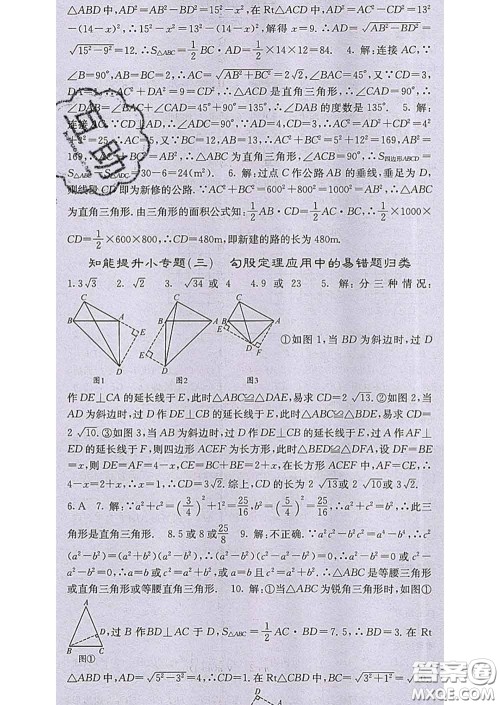 △ABD中,AD²=AB²-BD²=15²-x²,在Rt△ACD中,AD²=AC²-CD²=13²
-(14-x)²,∴15²-x²=13²-(14-x)²,解得x=9.∴AD=√(AB²-BD²)=
√(15²-9²)=12.∴S△ABC=1/2 BC·AD=1/2×14×12=84. 4.解:连接AC,∵
∠B=90°,AB=BC=2,∴AC=√(AB²+BC²)=2√2,∠BAC=45°,又∵CD=3,
∴△ACD是直角三角形,∴∠CAD=90°,∴∠DAB=
∠BAC+∠CAD=45°+90°=135°,∴∠DAB的度数是135°. 5.解:
连接AC.∵CD⊥AD,∴∠ADC=90°.∵AD=4,CD=3,∴AC²=AD²+CD²=4²
∴AC=5,又∵BC=12,AB=13,∴AC²+BC²=5²+12²=169,AB²=
169,∴△ABC为直角三角形,∠ACB=90°,∴S四边形ABCD=
S△ABC-S△ADC=30-6=24(m²). 6.解:过点C作公路AB的垂线,垂足为D,
则线段CD即为新修的公路.∵AC²+BC²=600²+800²=1000²=AB²,∴△ABC
为直角三角形.由三角形的面积公式知:1/2 AB·CD=1/2 AC·BC,∴1/2×1000×
CD=1/2×600×800,∴CD=480m,即新建的路的长为480m.
知能提升小专题(三) 勾股定理应用中的易错题归类
1.3√3 2.√2 3.√34或4 4.9或23 5.解:分三种情况:
C B A E D C B A E D C B A E D F
①如图1,当BD为斜边时,过D
图1 图2 图3
作DE⊥CA的延长线于E,此时△ABC≌△DAE,易求CD=2√13.②如图2,当
AD为斜边时,过D作DE⊥CB的延长线于E,此时△ABC≌△BDE,易求CD=
2√10.③如图3,当AB为斜边时,过D作DE⊥CB的延长线于E,过A作AF⊥
ED的延长线于F,则四边形ACEF为长方形,此时△BED≌△DFA,设DF=BE
=x,则DE=AF=4-x,CE=BC+BE=2+x,在长方形ACEF中,CE=AF,∴2+x
=4-x,∴x=1,∴CD=3√2.综上,CD的长为2√13或2√10或3√2.
6.A 7.解:∵a²+c²=(3/4)²+1²=25/16,b²=(5/4)²=25/16,∴a²+c²=b²,∴此三
角形是直角三角形. 8.5或8或25/8 9.解:不正确.∵a²c²-b²c²=a⁴-b⁴,∴c²
(a²-b²)=(a²+b²)(a²-b²),∴(a²-b²)(c²-a²-b²)=0,∴a²-b²=0或c²-
a²-b²=0,∴a=b或c²=a²+b²,或a=b且c²=a²+b²,∴△ABC是等腰三角形
或直角三角形或等腰直角三角形. 10.解:①当△ABC为锐角三角形时,如图①
A D B C
,过B作BD⊥AC于D,S△ABC=1/2 AC·BD=7.5,∴BD=3.在Rt
图①
△ABD中,AD=√(5²-3²)=4,∴CD=1.在Rt△CBD中,BC=√(3²+1²)=
D
互助
答案圈
MXQE.COM